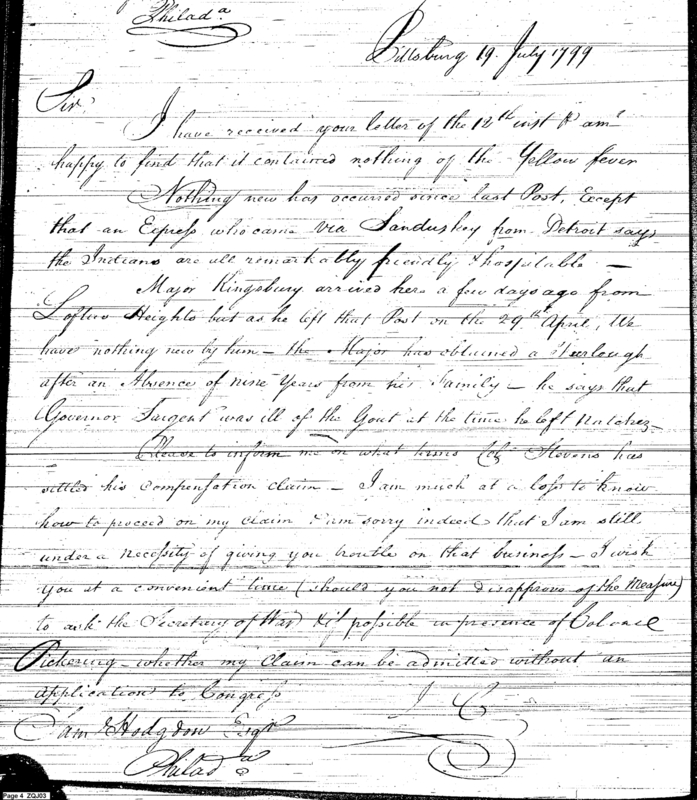 Philad.ª
Pittsburg 19. July 1799
Sir,
I have received your letter of the 12th inst & am
happy to find that it contained nothing of the Yellow fever
Nothing new has occurred since last Post, Except
that an Express who came via Sandusky from Detroit says
the Indians are all remarkably friendly & hospitable —
Major Kingsbury arrived here a few days ago from
Loftus Heights but as he left that Post on the 29th April, We
have nothing new by him — the Major has obtained a Furlough
after an Absence of nine Years from his Family — he says that
Governor Sargent was ill of the Gout at the time he left Natchez —
Please to inform me on what terms Col. Stevens has
settled his compensation claim — I am much at a loss to know
how to proceed on my claim I am sorry indeed that I am still
under a necessity of giving you trouble on that business — I wish
you at a convenient time (should you not disapprove of the Measure)
to ask the Secretary of War & if possible in presence of Colonel
Pickering — whether my claim can be admitted without an
application to Congress
I C
Sam.l Hodgdon Esqr
Philad.ª
Page 4 ZQJ03